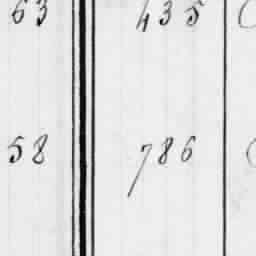 63 435
58 786